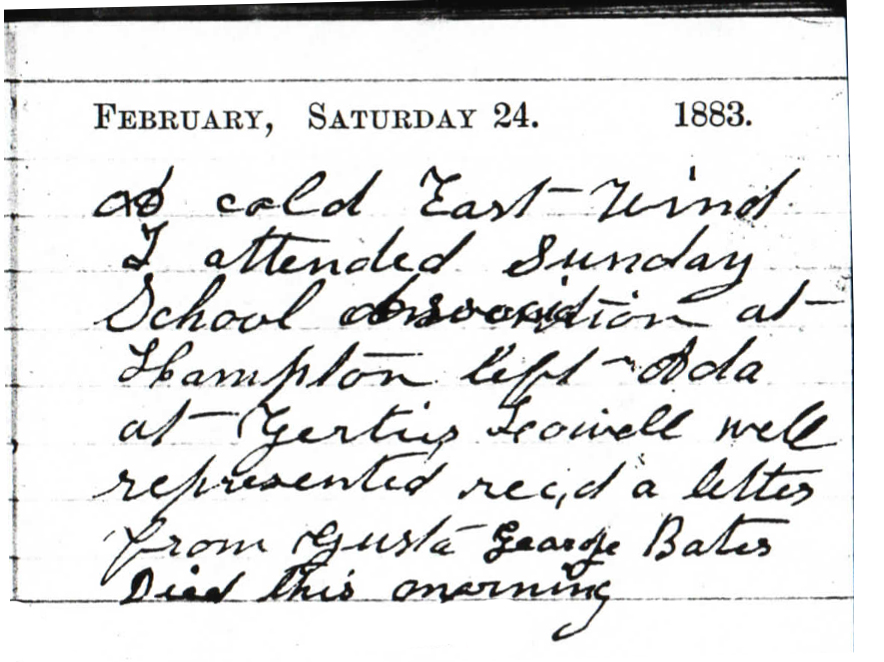 FEBRUARY, SATURDAY 24. 1883.
A cold East Wind
I attended Sunday
School Association at
Hampton left Ada
at Gerties well
represented rec,d a letter
from Gusta George Bates
Died this morning